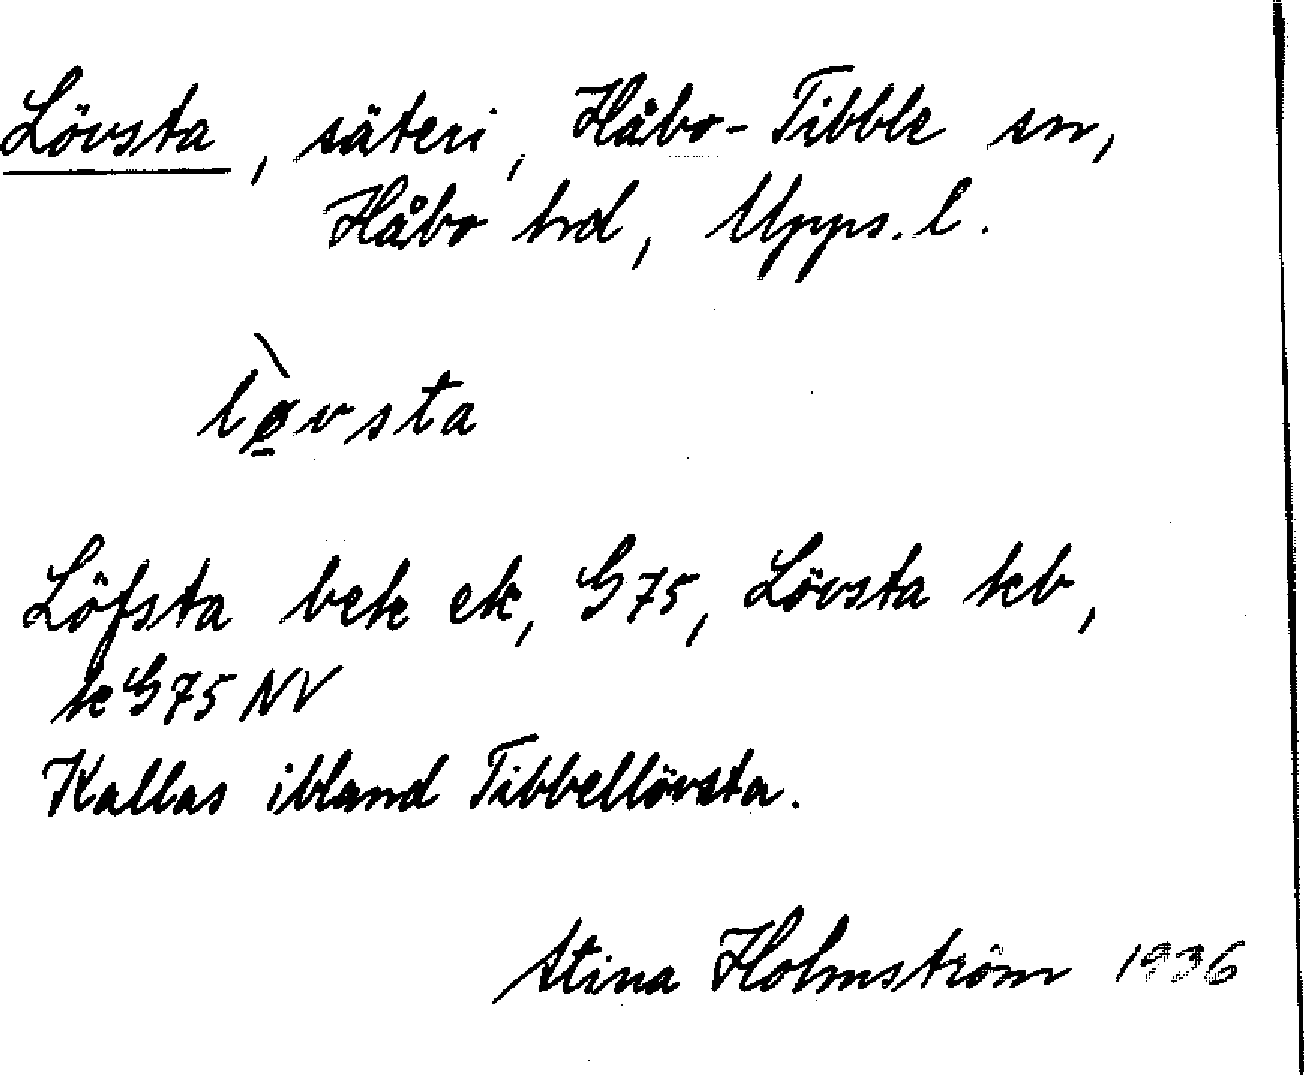 Lövsta, säteri, Håbo-Tibble sn,
Håbo hrd, Upps. l.
lø̀vsta
Löfsta bek ek, G75, Lövsta kb,
k G75 NV
Kallas ibland Tibbellövsta.
Stina Holmström 1936